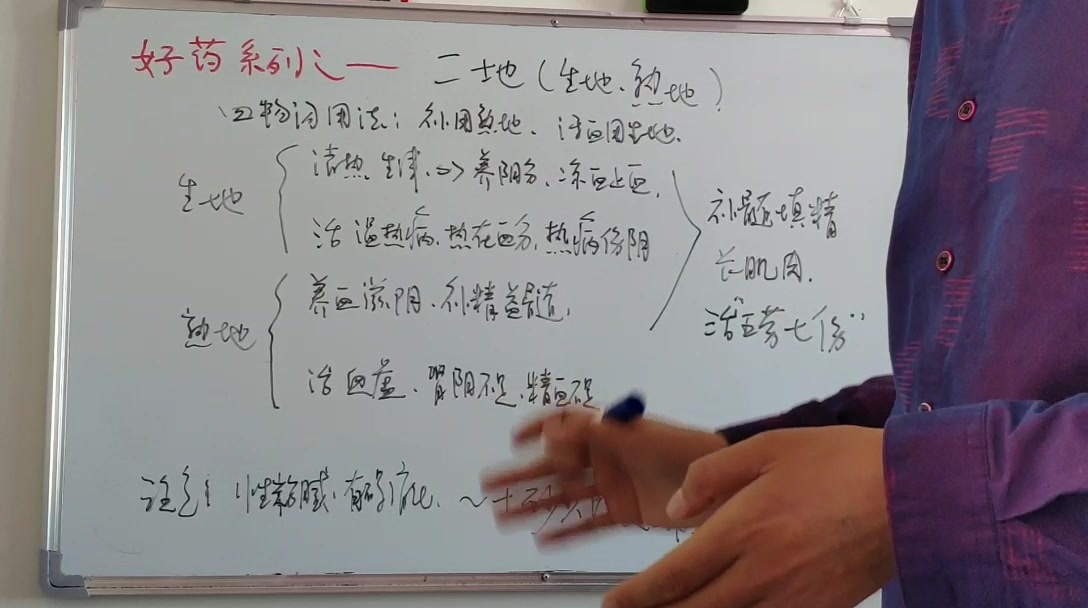 好药系列之一 二地(生地、熟地)
四物汤用法：补用熟地、活血用生地.
生地
清热生津 => 养阴分、凉血止血.
治温热病、热在血分,热病伤阴
熟地
养血滋阴、补精益髓.
治血虚、肾阴不足、精血不足
补髓填精
长肌肉.
治"五劳七伤"
注意: 性黏腻、有碍消化. ~ +砂仁